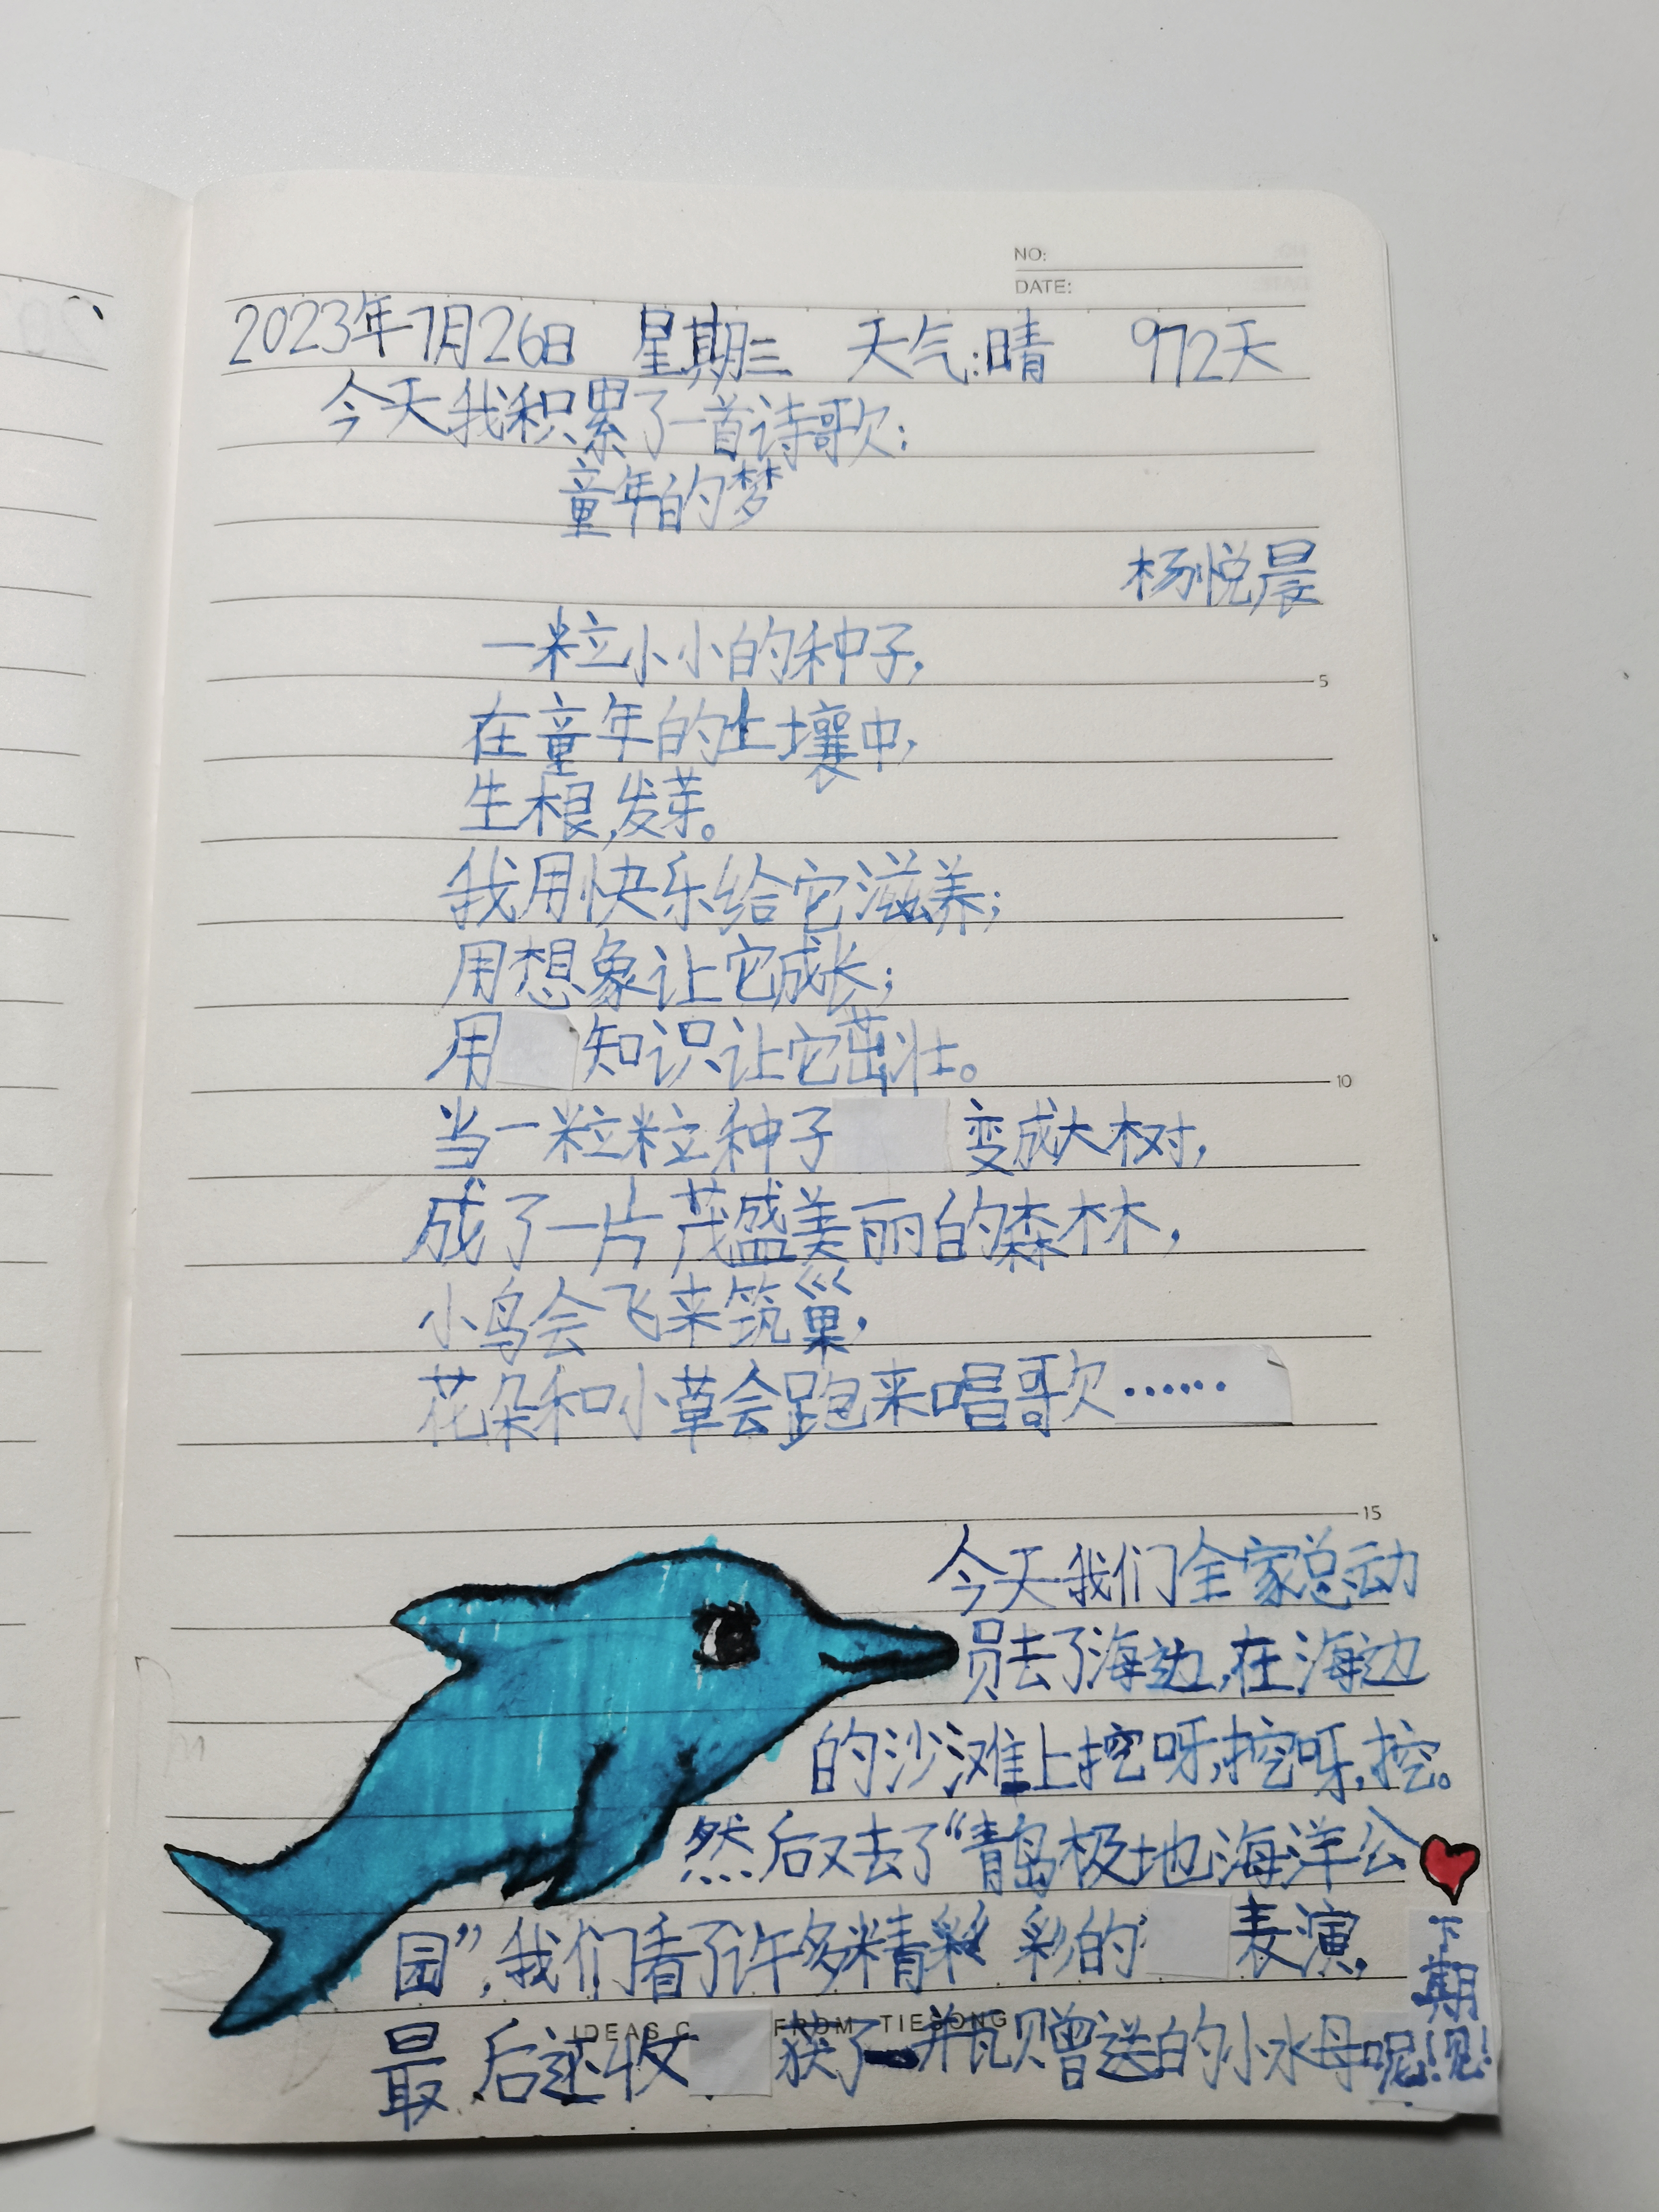 NO:
DATE:
2023年7月26日 星期三 天气:晴 972天
今天我积累了一首诗歌:
童年的梦
杨悦晨
一粒小小的种子,
在童年的土壤中,
5
生根,发芽。
我用快乐给它滋养;
用想象让它成长;
用 知识让它茁壮。
10
当一粒粒种子 变成大树,
成了一片茂盛美丽的森林,
小鸟会飞来筑巢,
花朵和小草会跑来唱歌……
15
今天我们全家总动
员去了海边,在海边
的沙滩上挖呀,挖呀,挖。
然后又去了“青岛极地海洋公
园”,我们看了许多精彩 彩的 表演,
最后还收 获了一瓶贝曾送的小水母呢!
下期见!
IDEAS FROM TIESONG